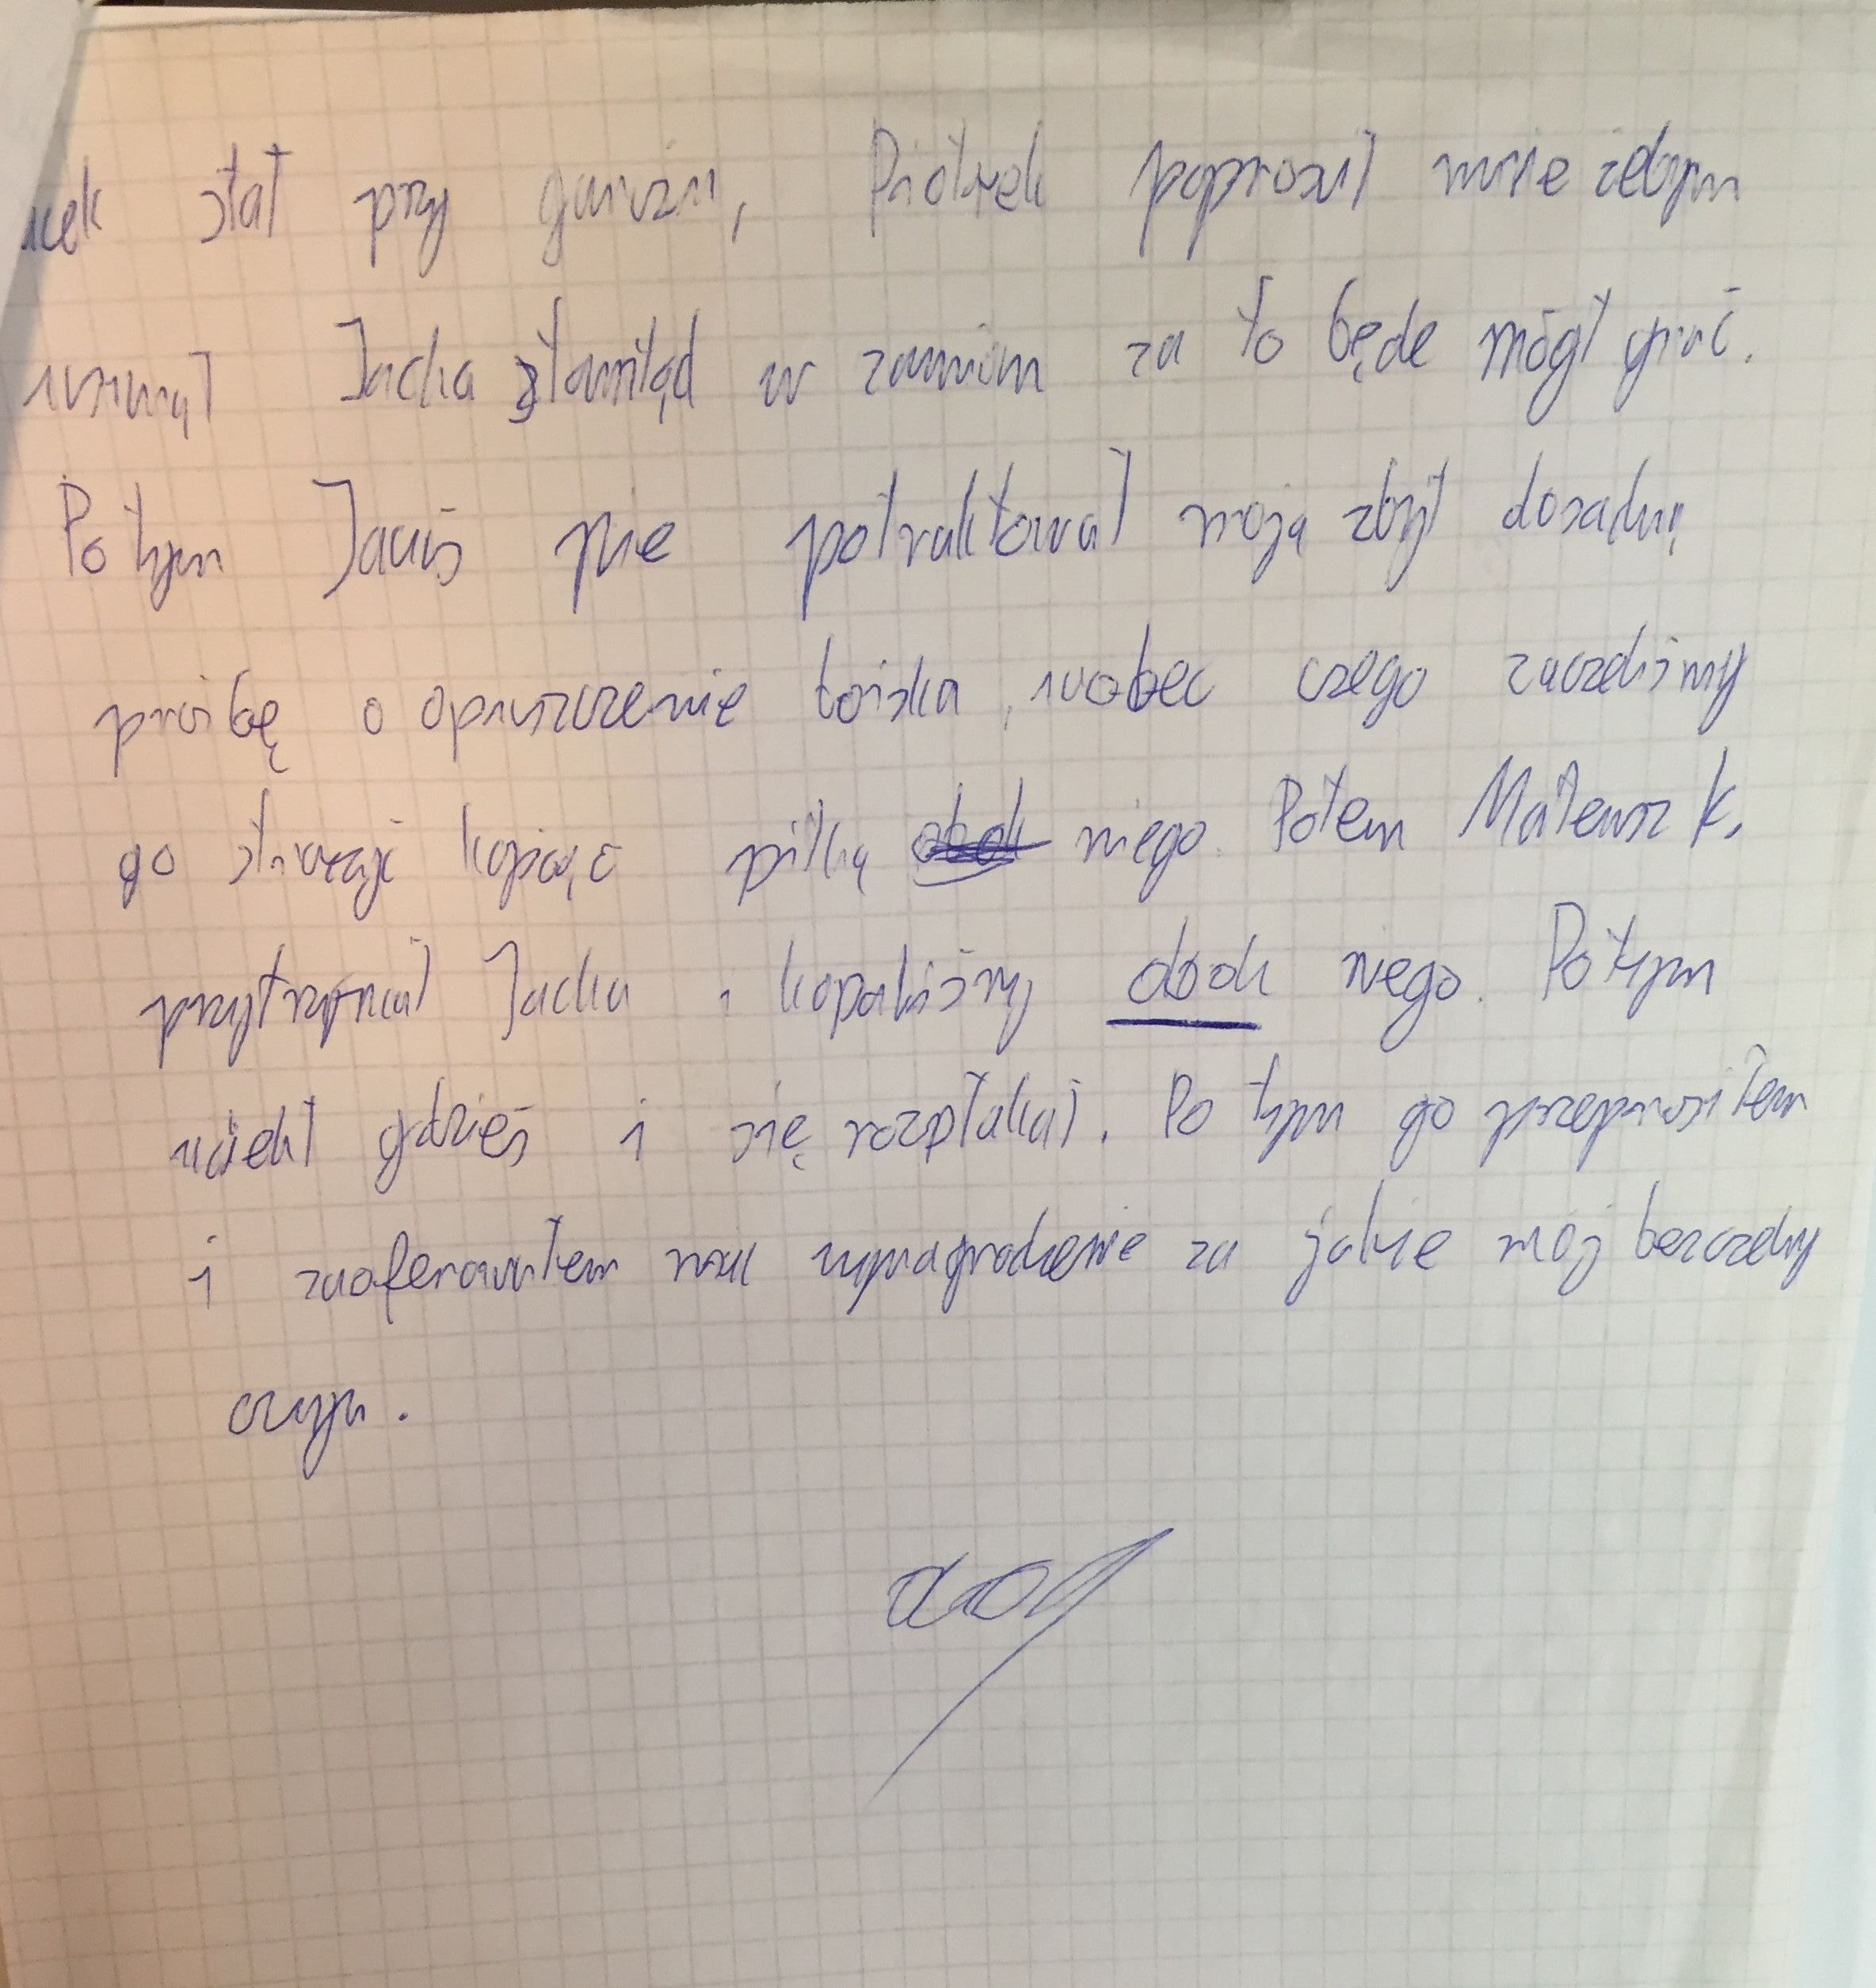 stał przy Piotrek poprosił mnie żebym
usunął Jacka stamtąd w zamian za to będe mógł grać.
Po tym Jacuś nie potraktował moją zbyt dosadną
prośbę o opuszczenie boiska, wobec czego zaczeliśmy
go kopiąc piłką niego. Potem Mateusz K.
przytrzymał Jacka i kopaliśmy obok niego. Po tym
uciekł gdzieś i się rozpłakał. Po tym go przeprosiłem
i zaoferowałem mu wynagrodzenie za jakie mój bezczelny
czyn.